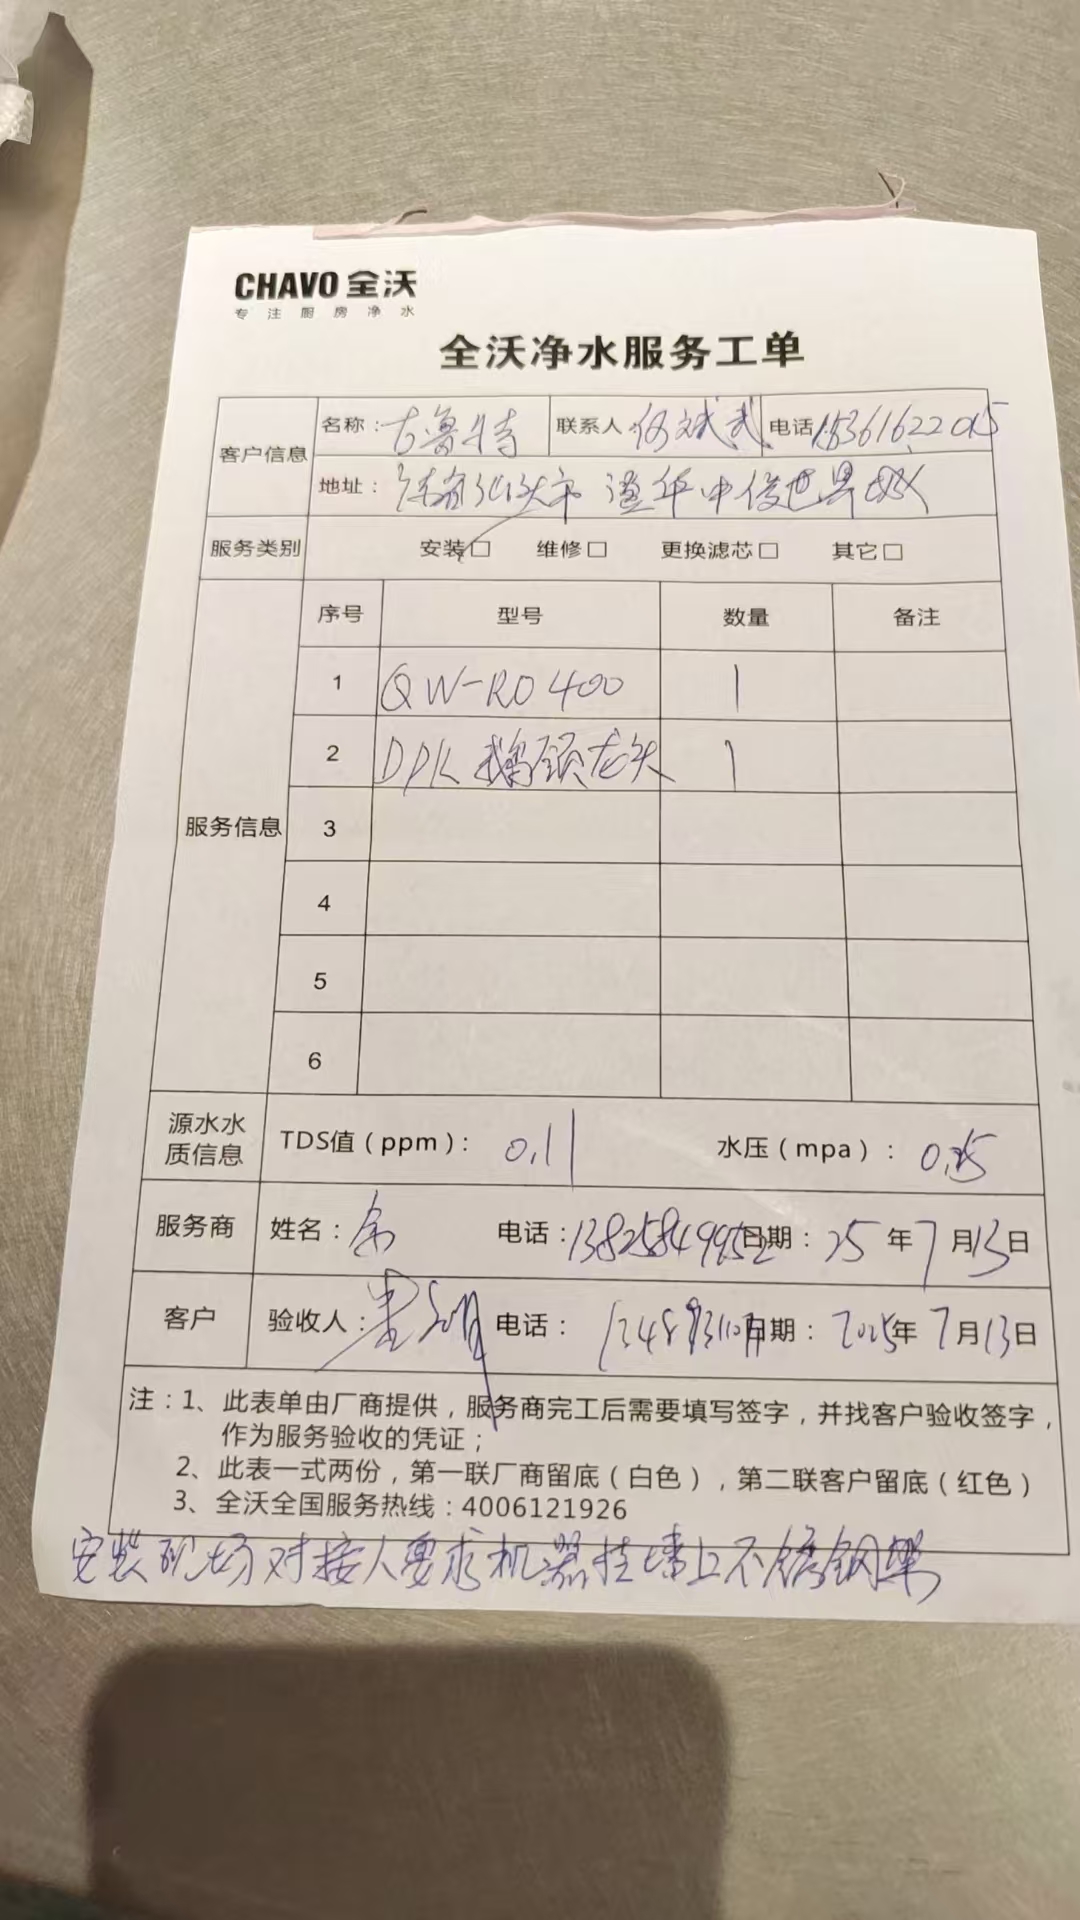 CHAVO 全沃
专注厨房净水
全沃净水服务工单
客户信息 名称：古鲁特 联系人 何斌武 电话 15361622015
地址：市 中信世界
服务类别 安装□ 维修□ 更换滤芯□ 其它□
服务信息 序号 型号 数量 备注
1 QW-RO400 1
2 DPK 鹅颈龙头 1
3
4
5
6
源水水质信息 TDS值（ppm）：0.11 水压（mpa）：
服务商 姓名：余 电话：13825849952 日期：25年7月13日
客户 验收人： 电话： 日期：2025年7月13日
注：1、此表单由厂商提供，服务商完工后需要填写签字，并找客户验收签字，
作为服务验收的凭证；
2、此表一式两份，第一联厂商留底（白色），第二联客户留底（红色）
3、全沃全国服务热线：4006121926
安装现场对接人要求机器挂墙上不锈钢架